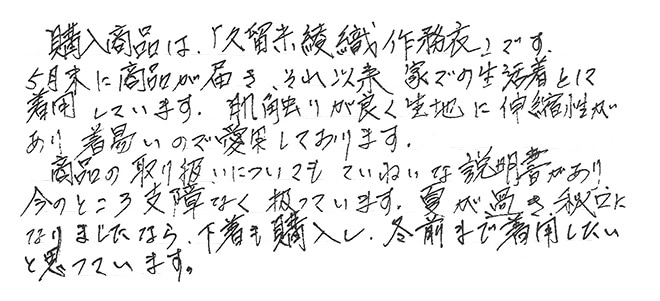 購入商品は、「久留米綾織作務衣」です。
5月末に商品が届き、それ以来 家での生活着として
着用しています。肌触りが良く生地に伸縮性が
あり 着易いので愛用しております。
商品の取り扱いについても ていねいな説明書があり
今のところ支障なく扱っています。夏が過ぎ 秋口に
なりましたなら、下着も購入し、冬前まで着用したい
と思っています。